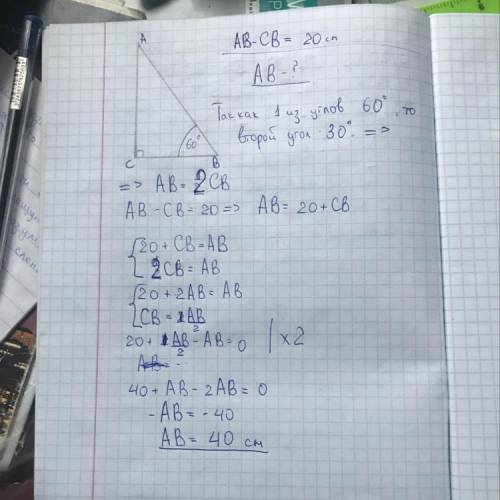 A
AB-CB = 20 см
AB - ?
Так как 1 из углов 60°, то
второй угол 30° =>
60°
C
B
=> AB = 2CB
AB - CB = 20 => AB = 20 + CB
20 + CB = AB
2CB = AB
20 + 2AB = AB
CB = 1AB/2
20 + 1AB/2 - AB = 0 | x2
AB = -
40 + AB - 2AB = 0
-AB = -40
AB = 40 см